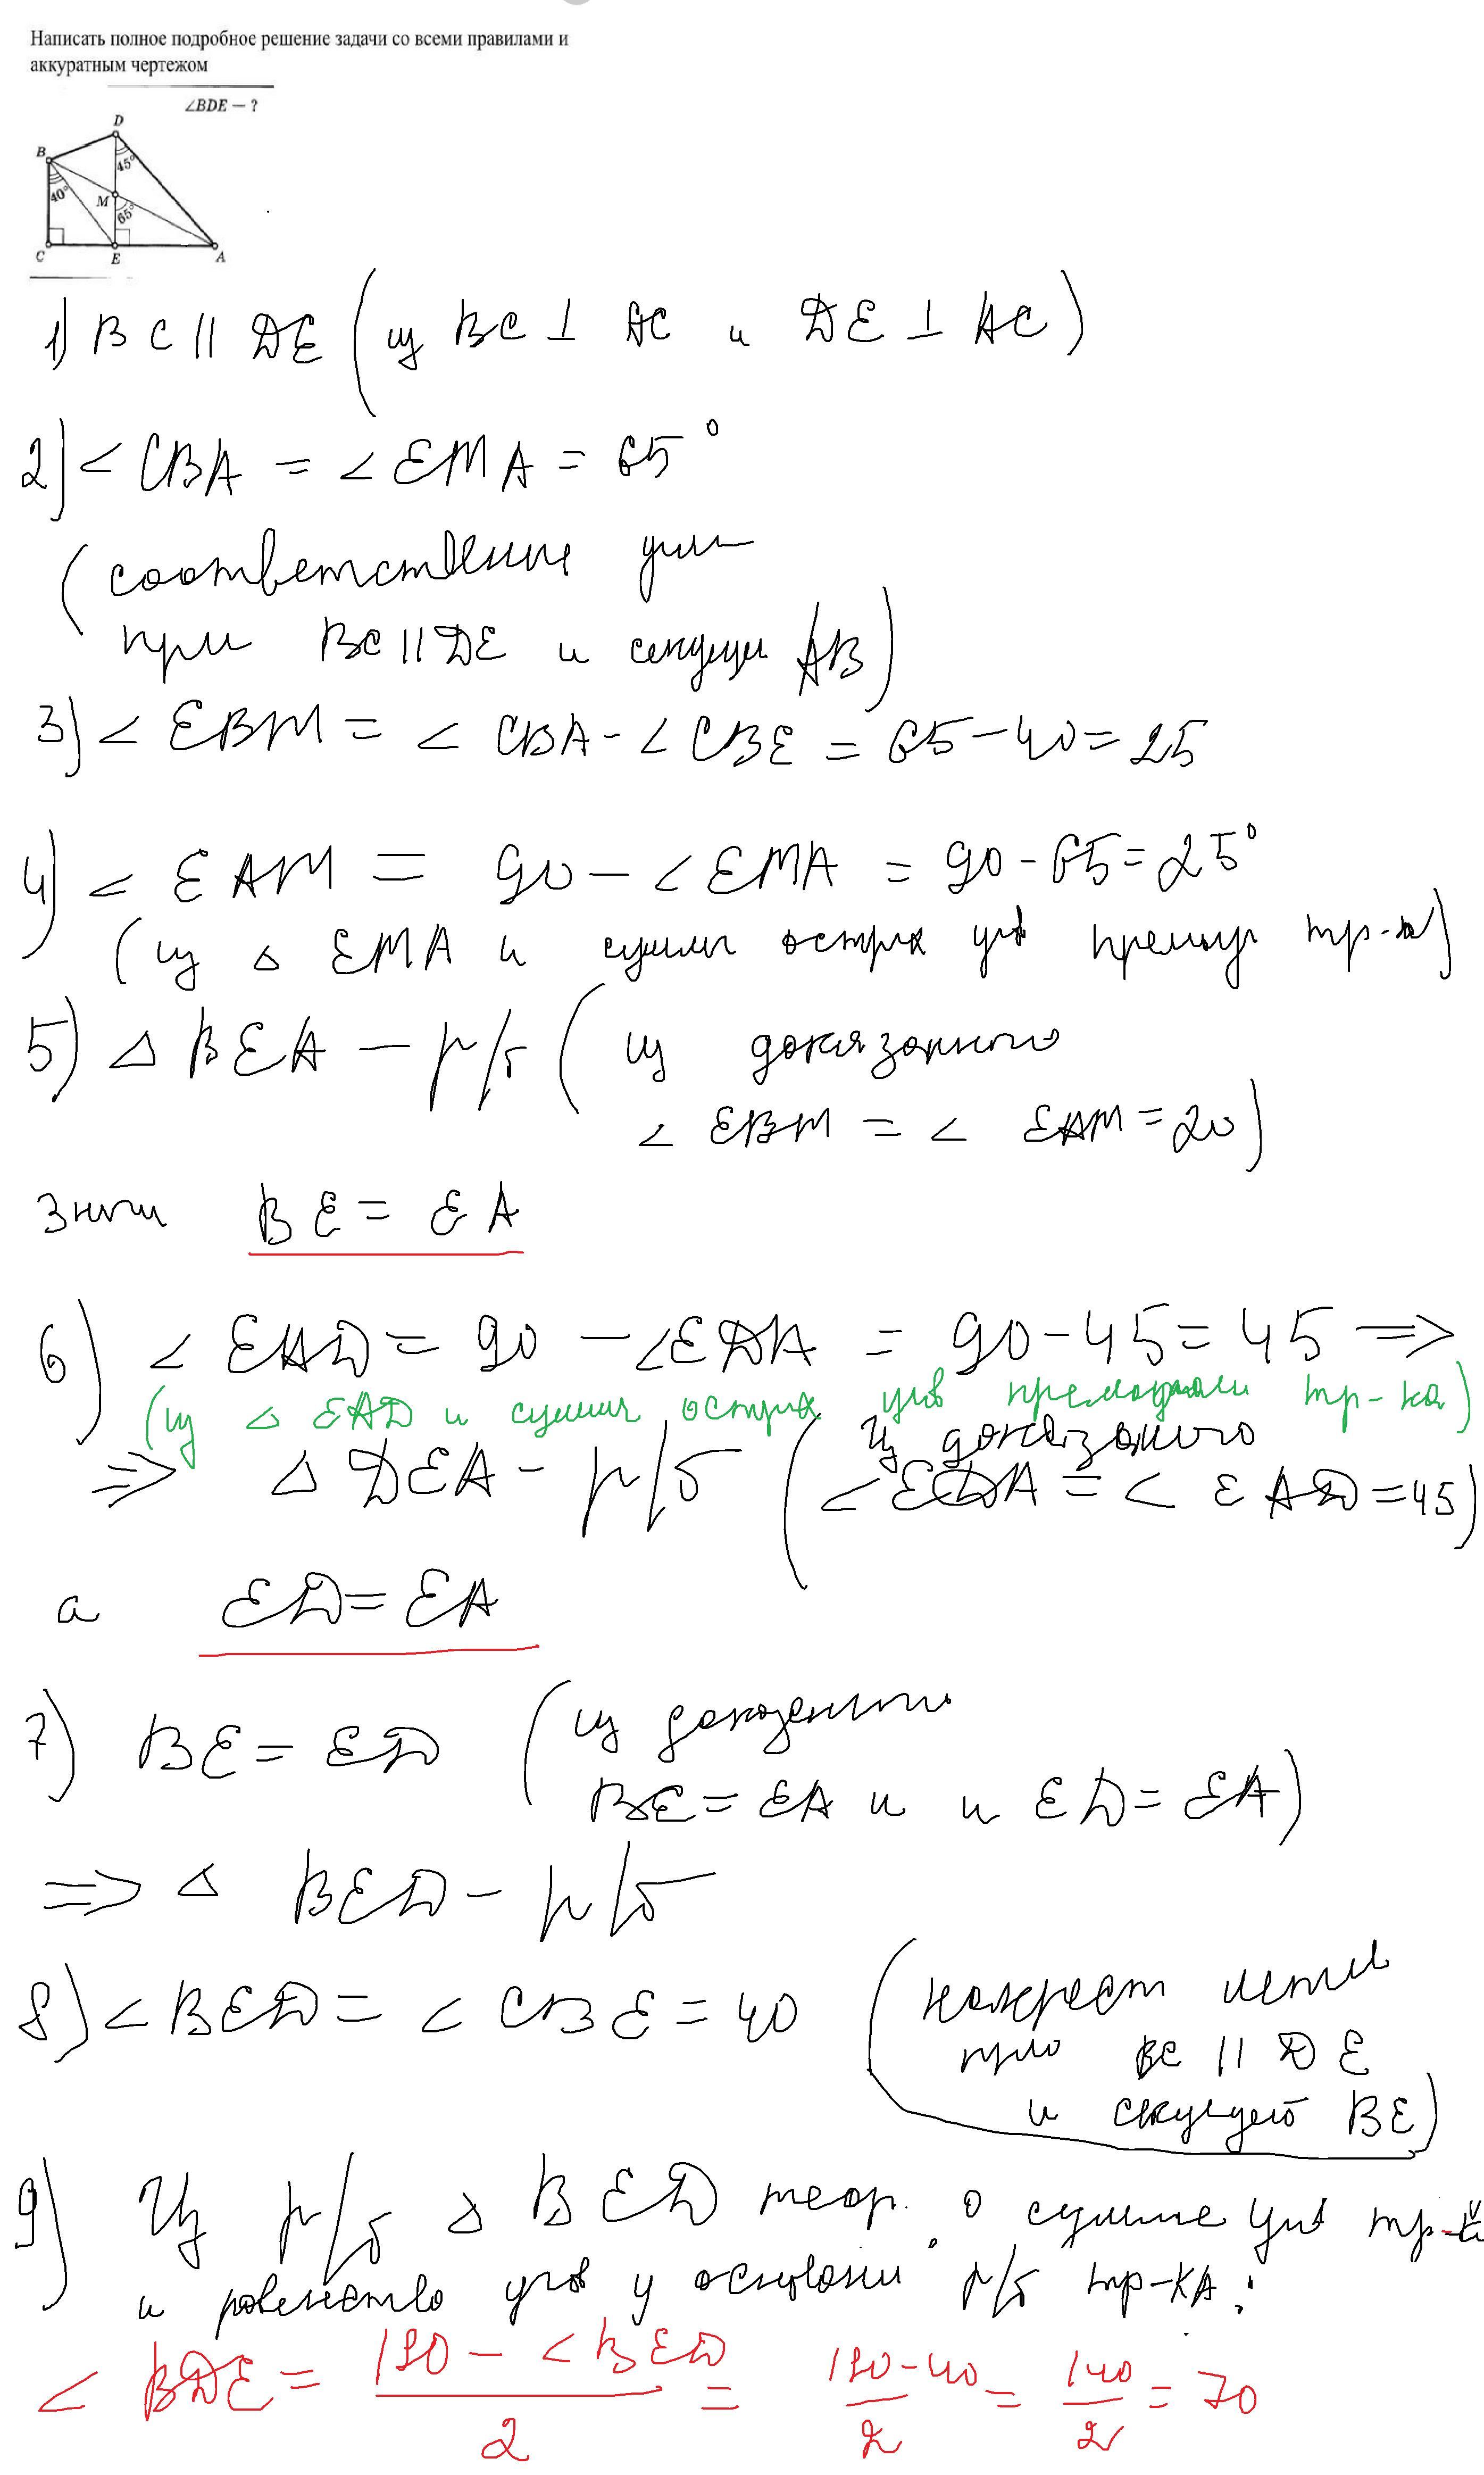 Написать полное подробное решение задачи со всеми правилами и
аккуратным чертежом
∠BDE — ?
D
B
45°
40°
M
65°
C
E
A
1) BC || DE (из BC ⊥ AC и DE ⊥ AC)
2) < CBA = < EMA = 65°
(соответственные углы
при BC || DE и секущей AB)
3) < EBM = < CBA - < CBE = 65 - 40 = 25
4) < EAM = 90 - < EMA = 90 - 65 = 25°
(из Δ EMA и суммы острых углов прямоуг тр-ка)
5) Δ BEA - р/б (из доказанного
< EBM = < EAM = 20)
Значит BE = EA
6) < EAD = 90 - < EDA = 90 - 45 = 45 =>
(из Δ EAD и суммы острых углов тр-ка)
из доказанного
=> Δ DEA - р/б (< EDA = < EAD = 45)
а ED = EA
7) BE = ED (из доказанного
BE = EA и и ED = EA)
=> Δ BED - р/б
8) < BED = < CBE = 40 (накрест
при BC || DE
и секущей BE)
9) Из р/б Δ BED теор. о сумме углов тр-к
и равенство углов у основани р/б тр-ка:
< BDE = (180 - < BED)/2 = (180-40)/2 = 140/2 = 70